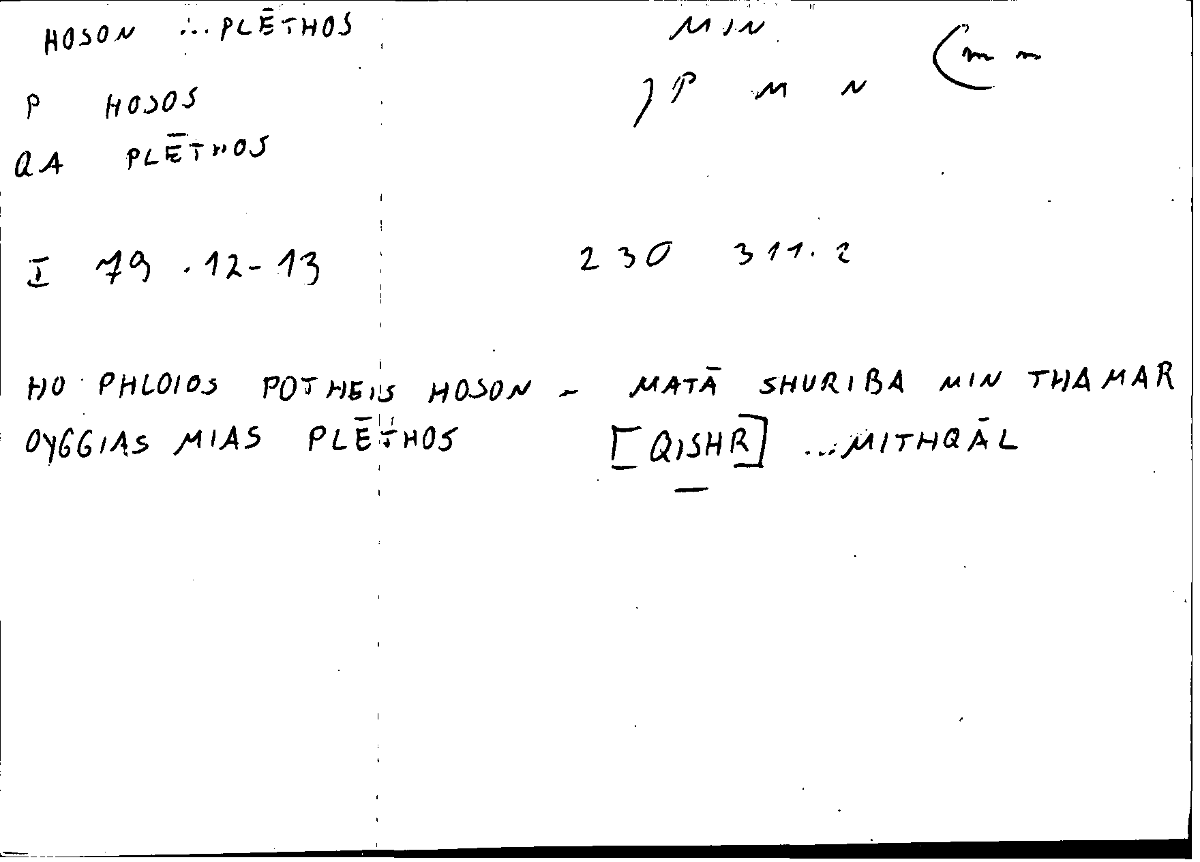 HOSON ... PLĒTHOS MIN
P HOSOS JP M N (m n
QA PLĒTHOS
I 79 .12-13 230 311.2
HO PHLOIOS POTHEIS HOSON - MATĀ SHURIBA MIN THAMAR
OYGGIAS MIAS PLĒTHOS [QISHR] ...MITHQĀL